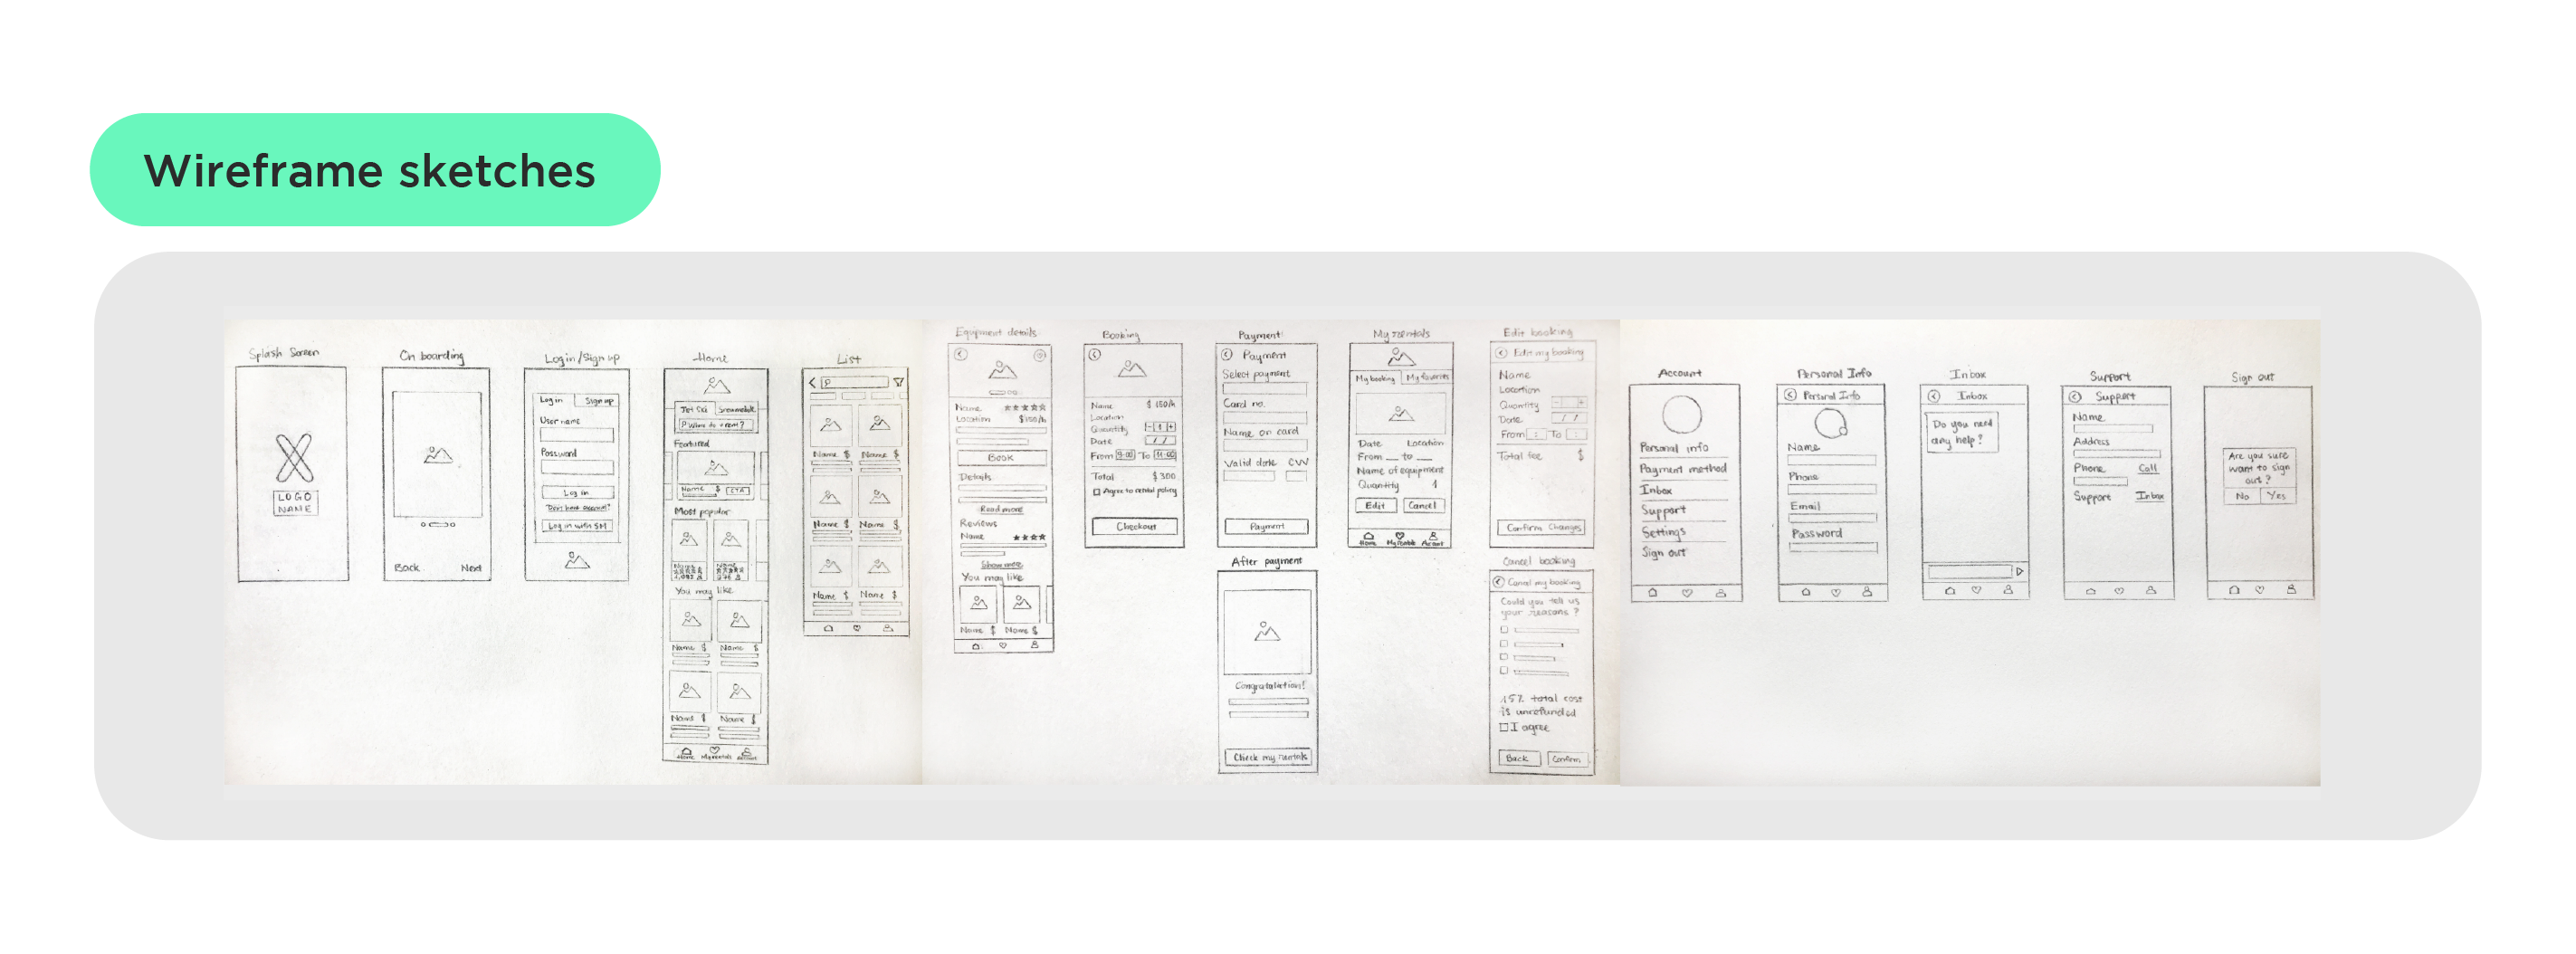 Wireframe sketches
Splash Screen
LOGO
NAME
On boarding
Back Next
Login/Sign up
Log in Sign up
User name
Password
Log in
Don't have account?
Log in with SM
Home
Jet Ski Snowmobile
Featured
Name $ CTA
Most popular
Name Name
You may like
Name $ Name $
Name $ Name $
Home My rentals Account
List
Name $ Name $
Name $ Name $
Name $ Name $
Equipment details
Name ★★★★★
Location $150/h
Book
Details
Read more
Reviews
Name ★★★★
Show more
You may like
Name $ Name $
Booking
Name $ 150/h
Location
Quantity - 1 +
Date / /
From 9:00 To 11:00
Total $300
Agree to rental policy
Checkout
Payment
Payment
Select payment
Card no.
Name on card
Valid date CVV
Payment
After payment
Congratulation!
Check my rentals
My rentals
My booking My favorites
Date Location
From __ to __
Name of equipment
Quantity 1
Edit Cancel
Home My rentals Account
Edit booking
Edit my booking
Name
Location
Quantity - +
Date / /
From : To :
Total fee $
Confirm Changes
Cancel booking
Cancel my booking
Could you tell us
your reasons ?
15% total cost
is unrefunded
I agree
Back Confirm
Account
Personal info
Payment method
Inbox
Support
Settings
Sign out
Personal Info
Personal Info
Name
Phone
Email
Password
Inbox
Inbox
Do you need
any help?
Support
Support
Name
Address
Phone Call
Support Inbox
Sign out
Are you sure
want to sign
out ?
No Yes